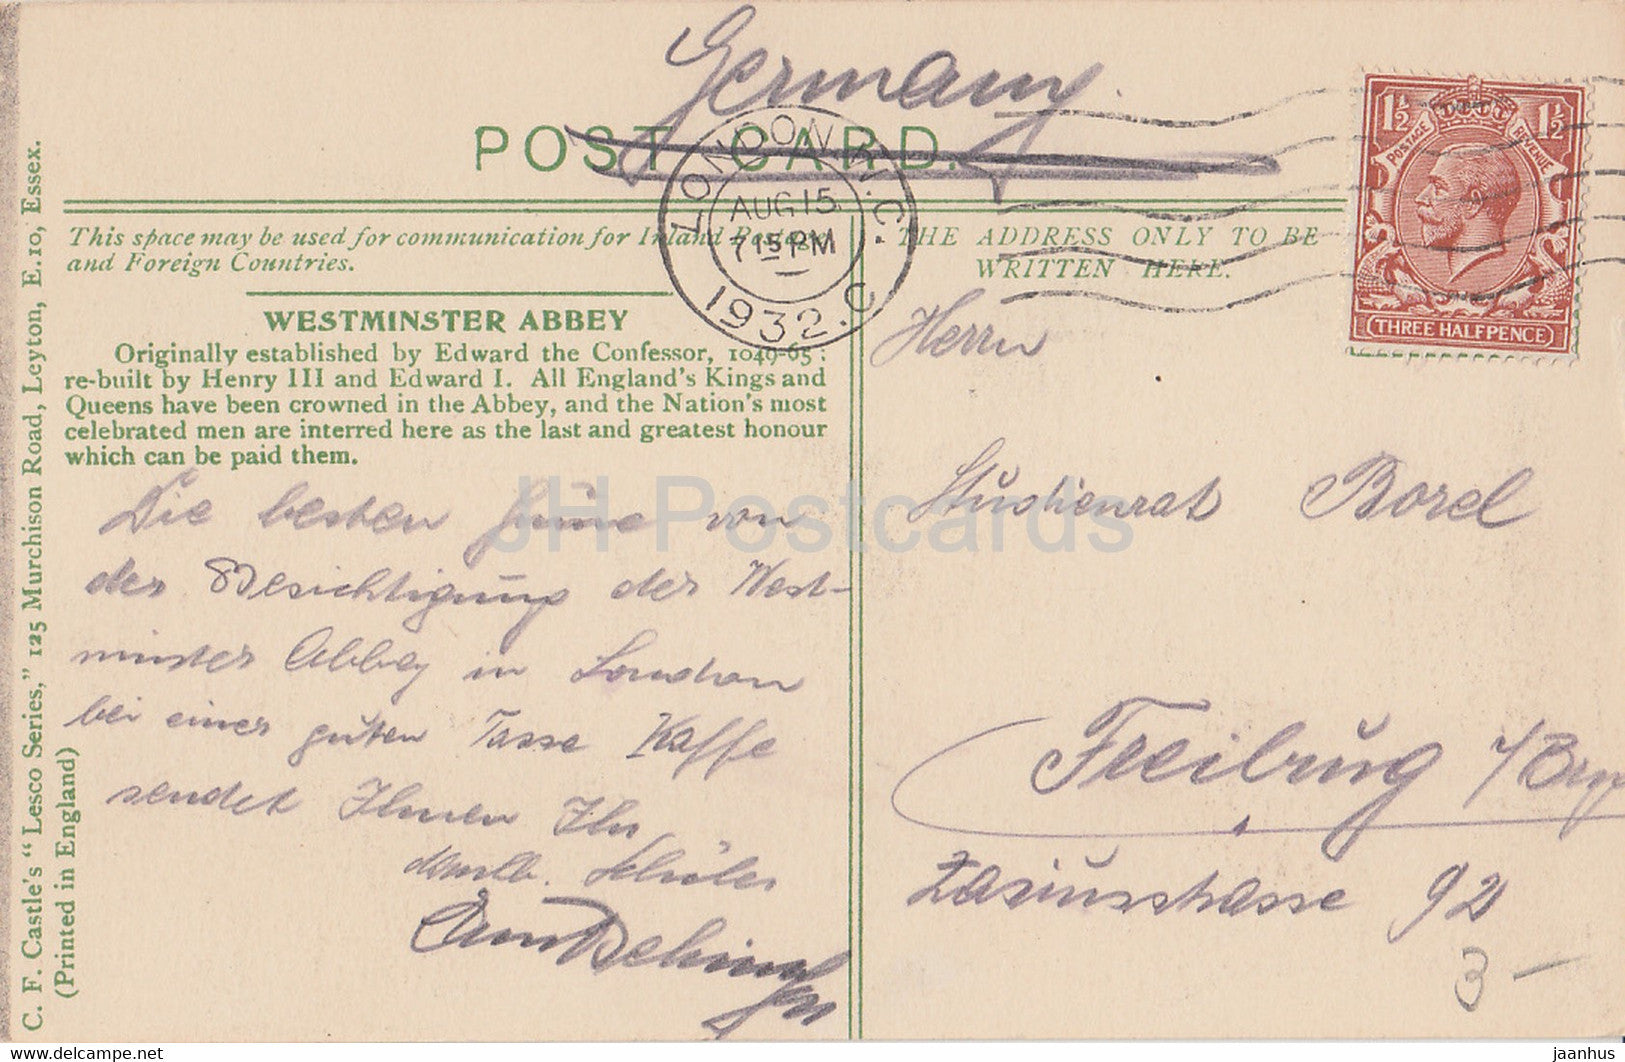 Germany.
POST CARD.
LONDON. W.C.
AUG 15
7 15 PM
1932. C
1½ 1½
POSTAGE REVENUE
THREE HALFPENCE
This space may be used for communication for Inland Postage
and Foreign Countries.
THE ADDRESS ONLY TO BE
WRITTEN HERE.
WESTMINSTER ABBEY
Originally established by Edward the Confessor, 1049-65:
re-built by Henry III and Edward I. All England's Kings and
Queens have been crowned in the Abbey, and the Nation's most
celebrated men are interred here as the last and greatest honour
which can be paid them.
Die besten Grüsse von
der Besichtigung der West-
minster Abbey in London
bei einer guten Tasse Kaffe
sendet Ihnen Ihr
dankb. Schüler
Herrn
Studienrat Borel
Freiburg
Zasiusstrasse 92
3 -
C. F. Castle's "Lesco Series," 125 Murchison Road, Leyton, E.10, Essex.
(Printed in England)
JH Postcards
www.delcampe.net
jaanhus